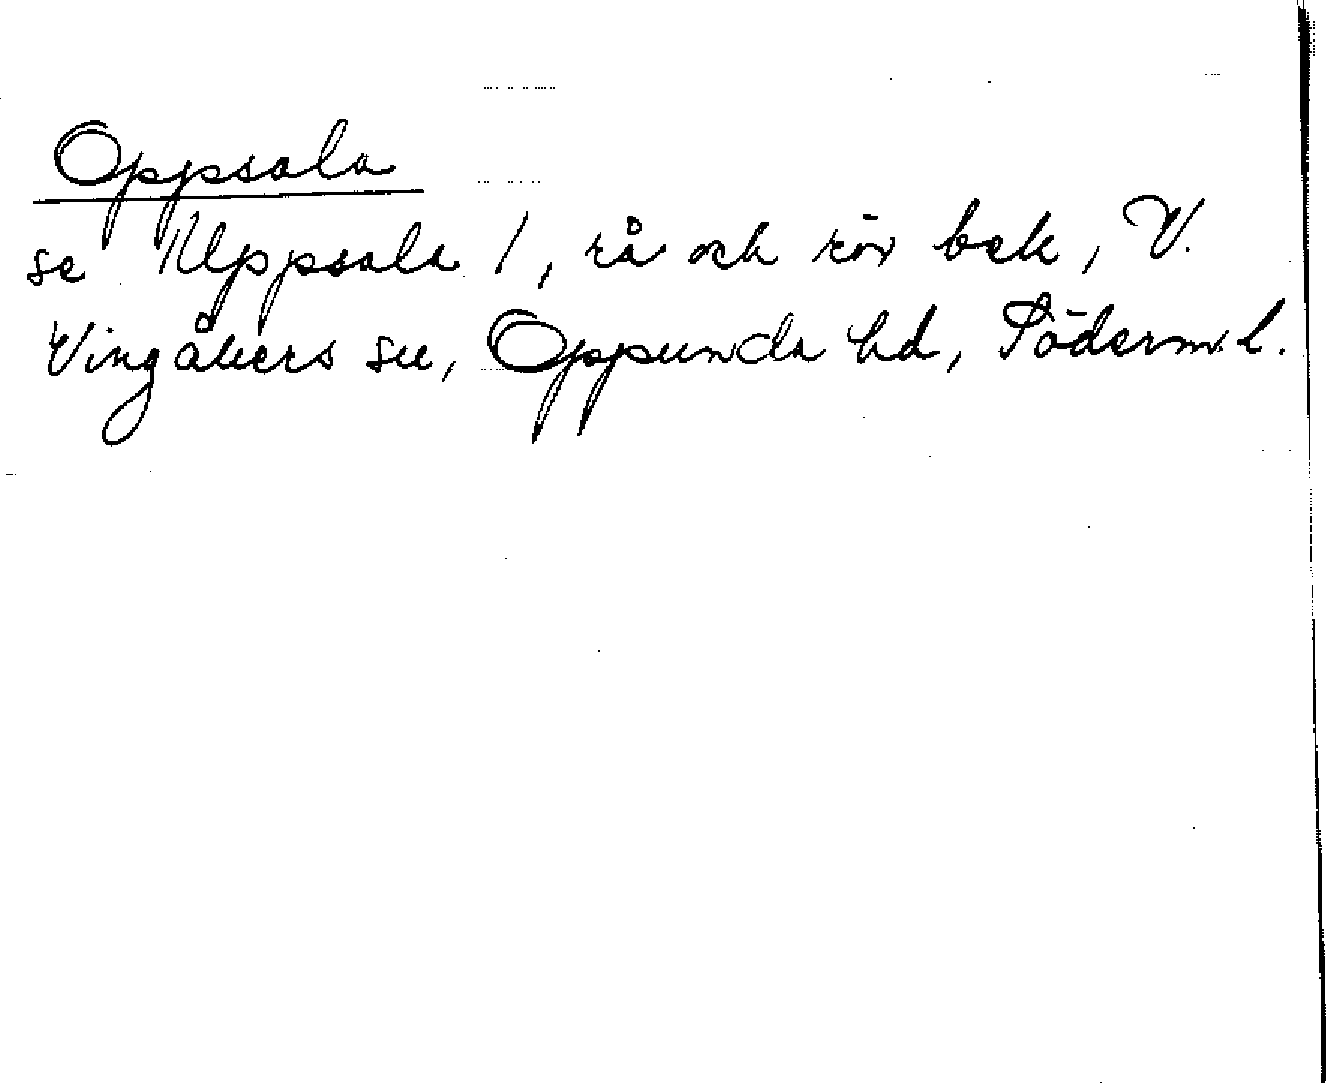 Oppsala
se Uppsala 1, rå och rör bek, V.
Vingåkers sn, Oppunda hd, Söderm. l.